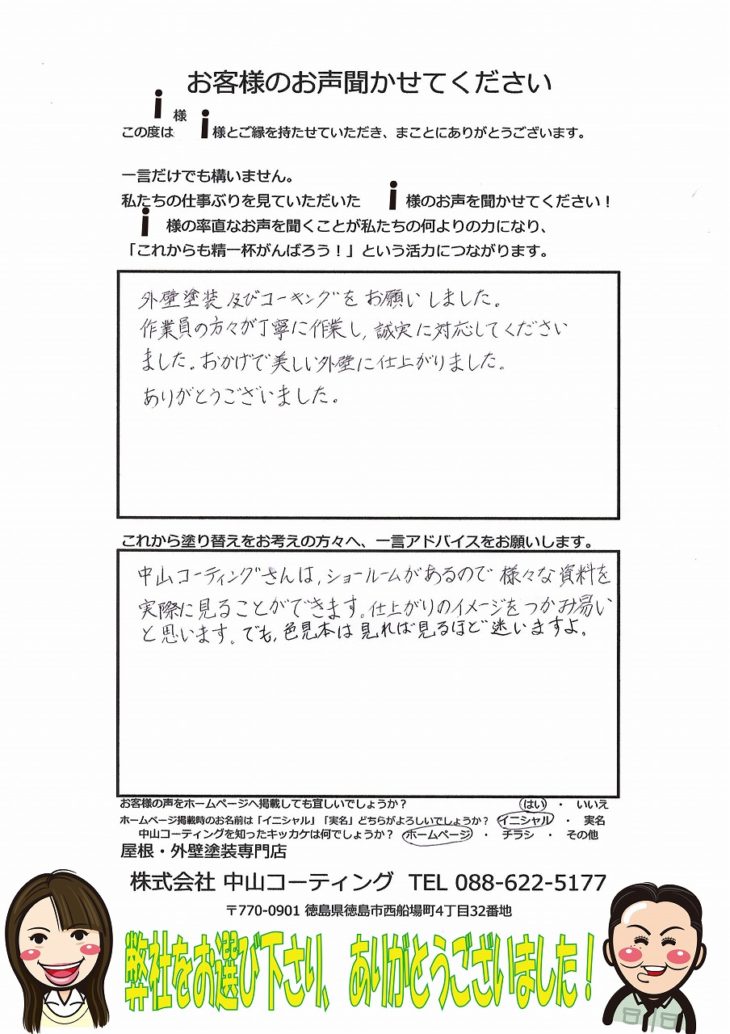 お客様のお声聞かせてください
i 様
この度は i 様とご縁を持たせていただき、まことにありがとうございます。
一言だけでも構いません。
私たちの仕事ぶりを見ていただいた i 様のお声を聞かせてください！
i 様の率直なお声を聞くことが私たちの何よりの力になり、
「これからも精一杯がんばろう！」という活力につながります。
外壁塗装及びコーキングをお願いしました。
作業員の方々が丁寧に作業し,誠実に対応してください
ました。おかげで美しい外壁に仕上がりました。
ありがとうございました。
これから塗り替えをお考えの方々へ、一言アドバイスをお願いします。
中山コーティングさんは,ショールームがあるので様々な資料を
実際に見ることができます。仕上がりのイメージをつかみ易い
と思います。でも,色見本は見れば見るほど迷いますよ。
お客様の声をホームページへ掲載しても宜しいでしょうか？ はい ・ いいえ
ホームページ掲載時のお名前は「イニシャル」「実名」どちらがよろしいでしょうか？ イニシャル ・ 実名
中山コーティングを知ったキッカケは何でしょうか？ ホームページ ・ チラシ ・ その他
屋根・外壁塗装専門店
株式会社 中山コーティング TEL 088-622-5177
〒770-0901 徳島県徳島市西船場町4丁目32番地
弊社をお選び下さり、ありがとうございました！